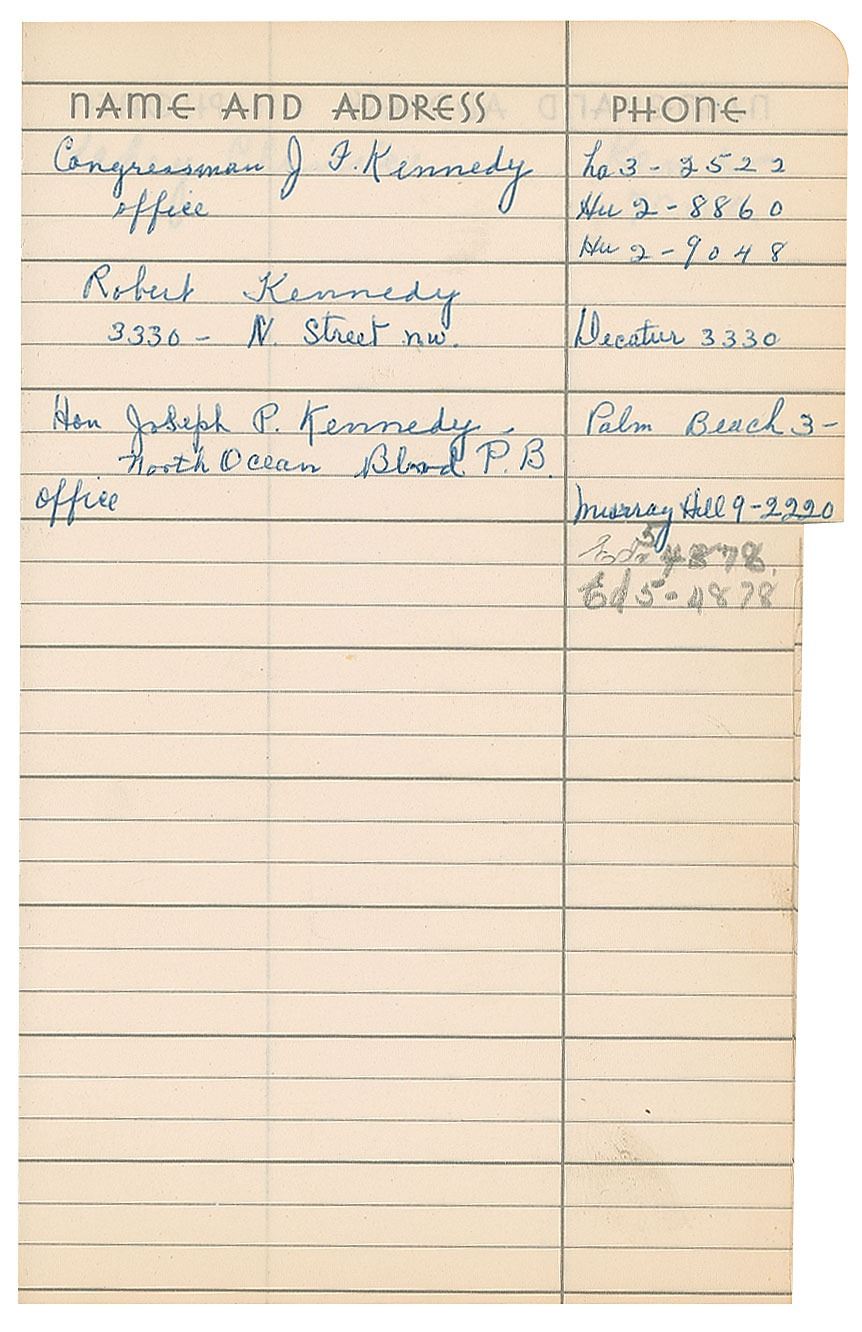 NAME AND ADDRESS PHONE
Congressman J F. Kennedy La 3-2522
office Hu 2-8860
Hu 2-9048
Robert Kennedy
3330 - N. Street nw. Decatur 3330
Hon Joseph P. Kennedy - Palm Beach 3-
North Ocean Blvd P.B.
office Murray Hill 9-2220
5
4878.
Ed 5-4878